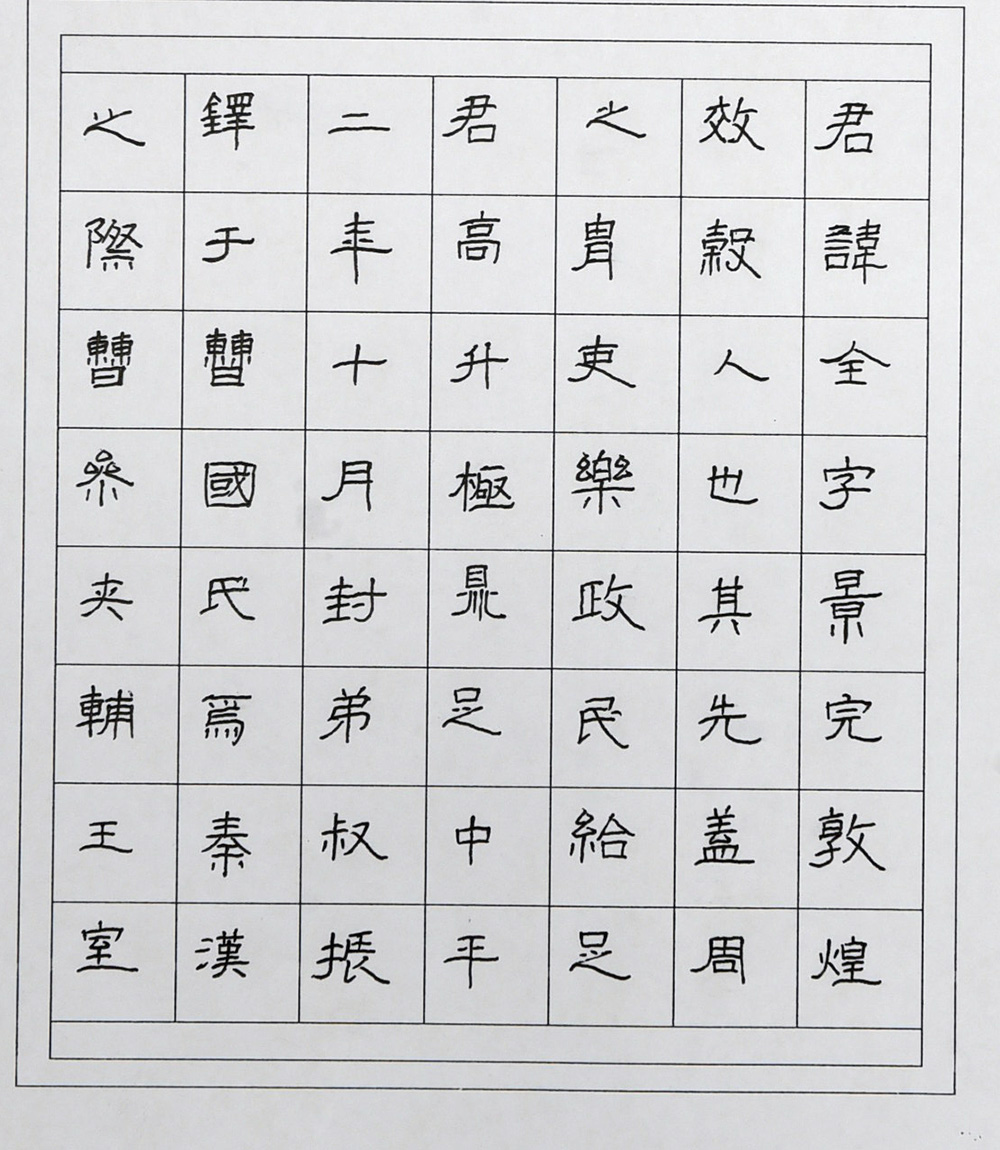 君諱全字景完敦煌
效穀人也其先蓋周
之胄吏樂政民給足
君高升極鼎足中平
二年十月封弟叔振
鐸于曹國氏焉秦漢
之際曹參夾輔王室